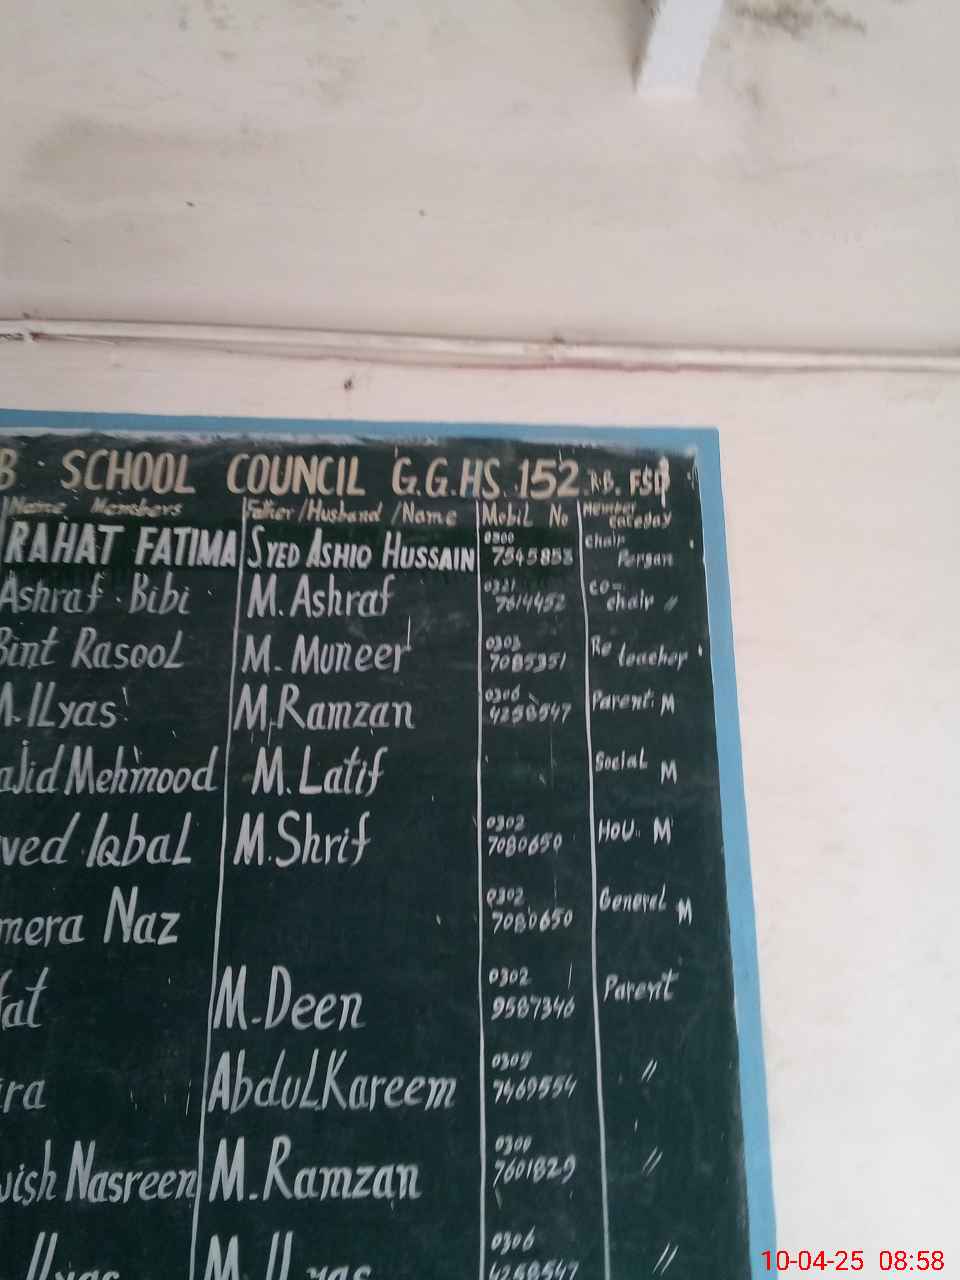 B SCHOOL COUNCIL G.G.HS. 152 R.B. FSD
Name Members Father/Husband/Name Mobil No Member
RAHAT FATIMA SYED ASHIQ HUSSAIN 0300 7545853 chair Persan
Ashraf Bibi M. Ashraf 0321 7614452 co- chair "
Bint Rasool M. Muneer 0303 7085351 Re teacher
M. ILyas M. Ramzan 0306 4258547 Parent. M
ajid Mehmood M. Latif Social M
ved Iqbal M. Shrif 0302 7080650 HOU.. M
mera Naz 0302 7080650 General M
fat M. Deen 0302 9587346 Parent
ra Abdul Kareem 0305 7469554 "
wish Nasreen M. Ramzan 0300 7601829 "
Ilyas M. Ilyas 0306 4258547 "
10-04-25 08:58